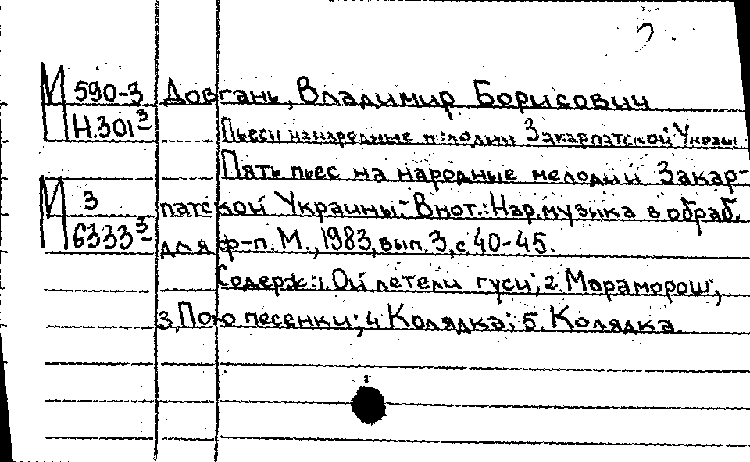 И 590-3 Довгань, Владимир Борисович
Н.301-3 Пьесы на народные мелодии Закарпатской Украи
Пять пьес на народные мелодии Закар-
И 3 патской Украины.-В нот.: Нар.музыка в обраб.
6333-3 для ф-п. М., 1983, вып.3, с.40-45.
Содерж.: 1.Ой летели гуси; 2.Мараморош;
3.Пою песенки; 4.Колядка; 5.Колядка.